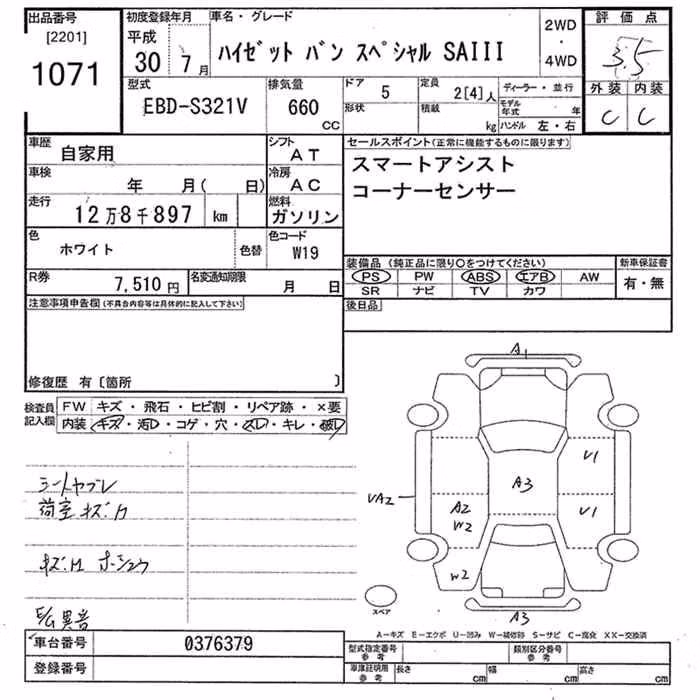 出品番号 初度登録年月 車名・グレード 2WD ・ 4WD 評価点
[2201] 平成
1071 30 7月 ハイゼット バン スペシャル SAIII 3.5
外装 内装
C C
型式 排気量 ドア 5 定員 2[4]人 ディーラー・並行
EBD-S321V 660 CC 形状 積載 kg モデル年式 年
ハンドル 左・右
車歴 自家用 シフト AT セールスポイント(正常に機能するものに限ります)
スマートアシスト
車検 年 月( 日) 冷房 AC コーナーセンサー
走行 12万8千897 km 燃料 ガソリン
色 ホワイト 色替 色コード W19
装備品(純正品に限り○をつけてください) 新車保証書
PS PW ABS エアB AW 有・無
SR ナビ TV カワ
R券 7,510円 名変通知期限 月 日
後日品
注意事項申告欄(不具合内容等は具体的に記入して下さい)
修復歴 有〔箇所 〕
検査員記入欄 FW キズ・飛石・ヒビ割・リペア跡・×要
内装 キズ・汚レ・コゲ・穴・スレ・キレ・破レ
シートヤブレ
荷室キズ
異音
A1
V1
A3
VA2 A2 W2 V1
W2
スペア
A3
A―キズ E―エクボ U―凹み W―補修跡 S―サビ C―腐食 XX―交換済
車台番号 0376379 型式指定番号 参考 類別区分番号 参考
登録番号 車庫証明用 参考 長さ cm 幅 cm 高さ cm